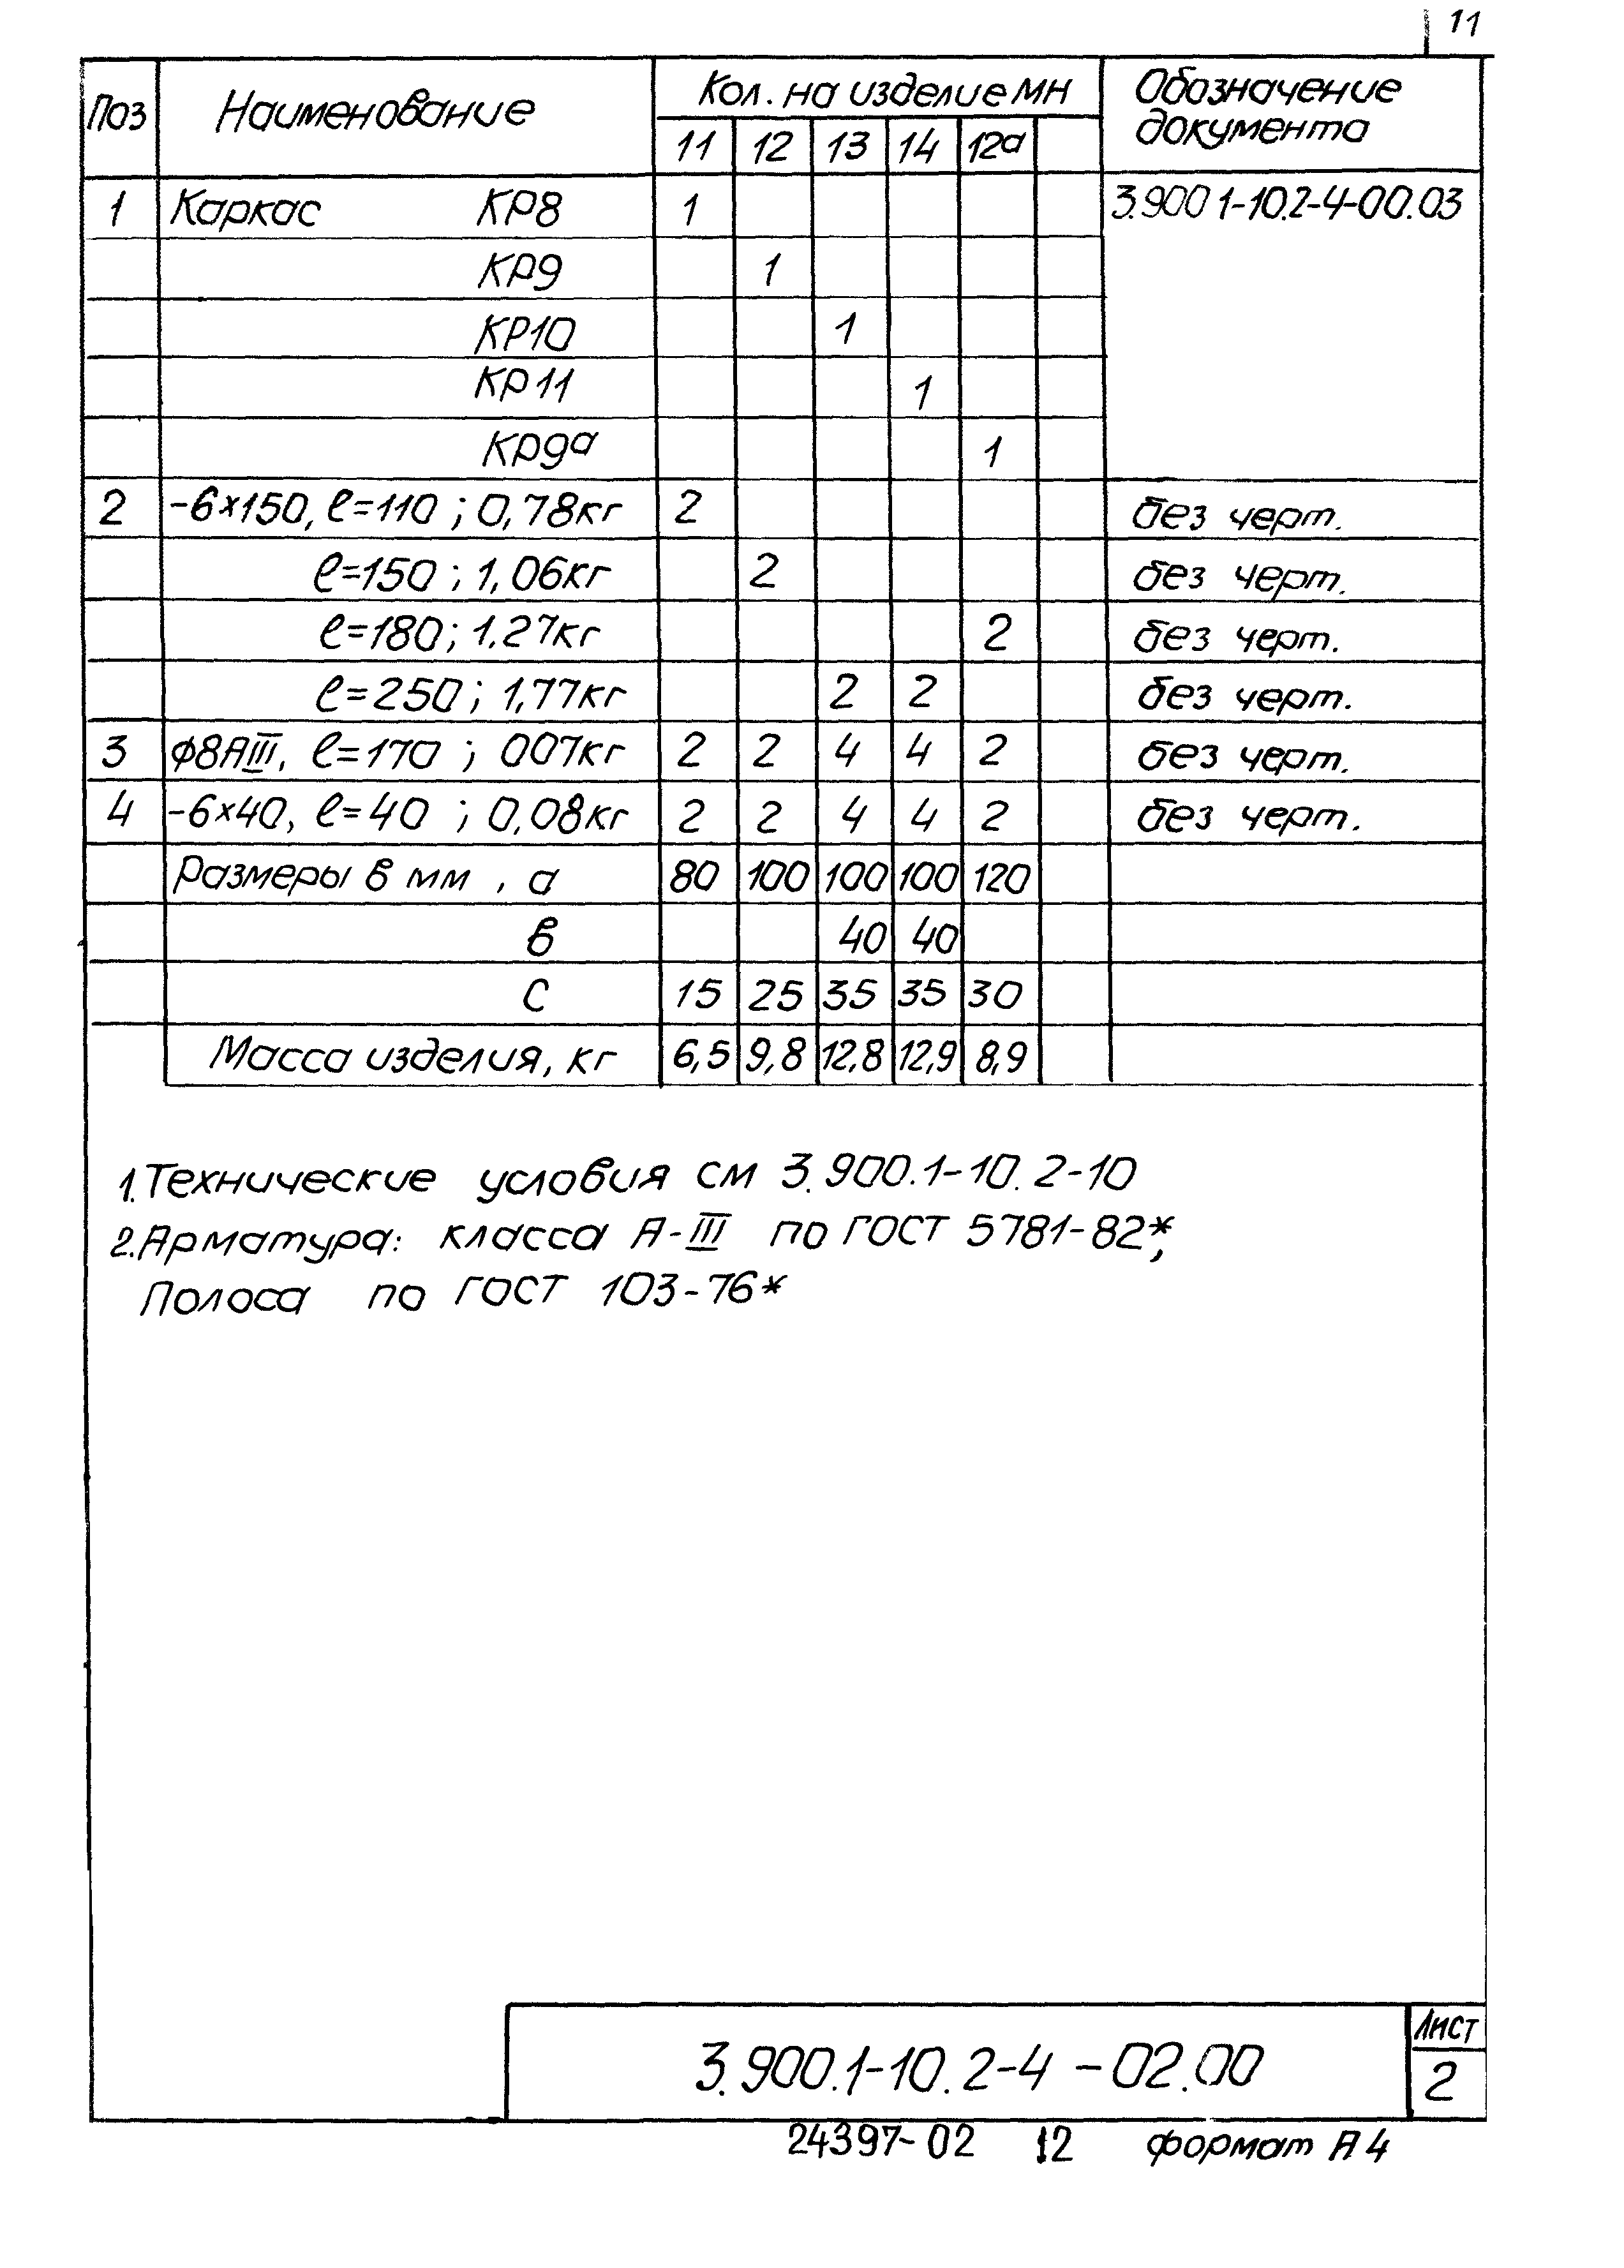 11
Поз Наименование Кол. на изделие МН Обозначение документа
11 12 13 14 12а
1 Каркас КР8 1 3.900 1-10.2-4-00.03
КР9 1
КР10 1
КР11 1
КР9а 1
2 -6×150, ℓ=110 ; 0,78кг 2 без черт.
ℓ=150 ; 1,06кг 2 без черт.
ℓ=180 ; 1.27кг 2 без черт.
ℓ=250 ; 1,77кг 2 2 без черт.
3 ϕ8АIII, ℓ=170 ; 007кг 2 2 4 4 2 без черт.
4 -6×40, ℓ=40 ; 0,08кг 2 2 4 4 2 без черт.
Размеры в мм , а 80 100 100 100 120
в 40 40
С 15 25 35 35 30
Масса изделия, кг 6,5 9,8 12,8 12,9 8,9
1. Технические условия см 3.900.1-10.2-10
2. Арматура: класса А-III по ГОСТ 5781-82*,
Полоса по ГОСТ 103-76*
3.900.1-10.2-4 -02.00
Лист
2
24397-02 12 формат А4